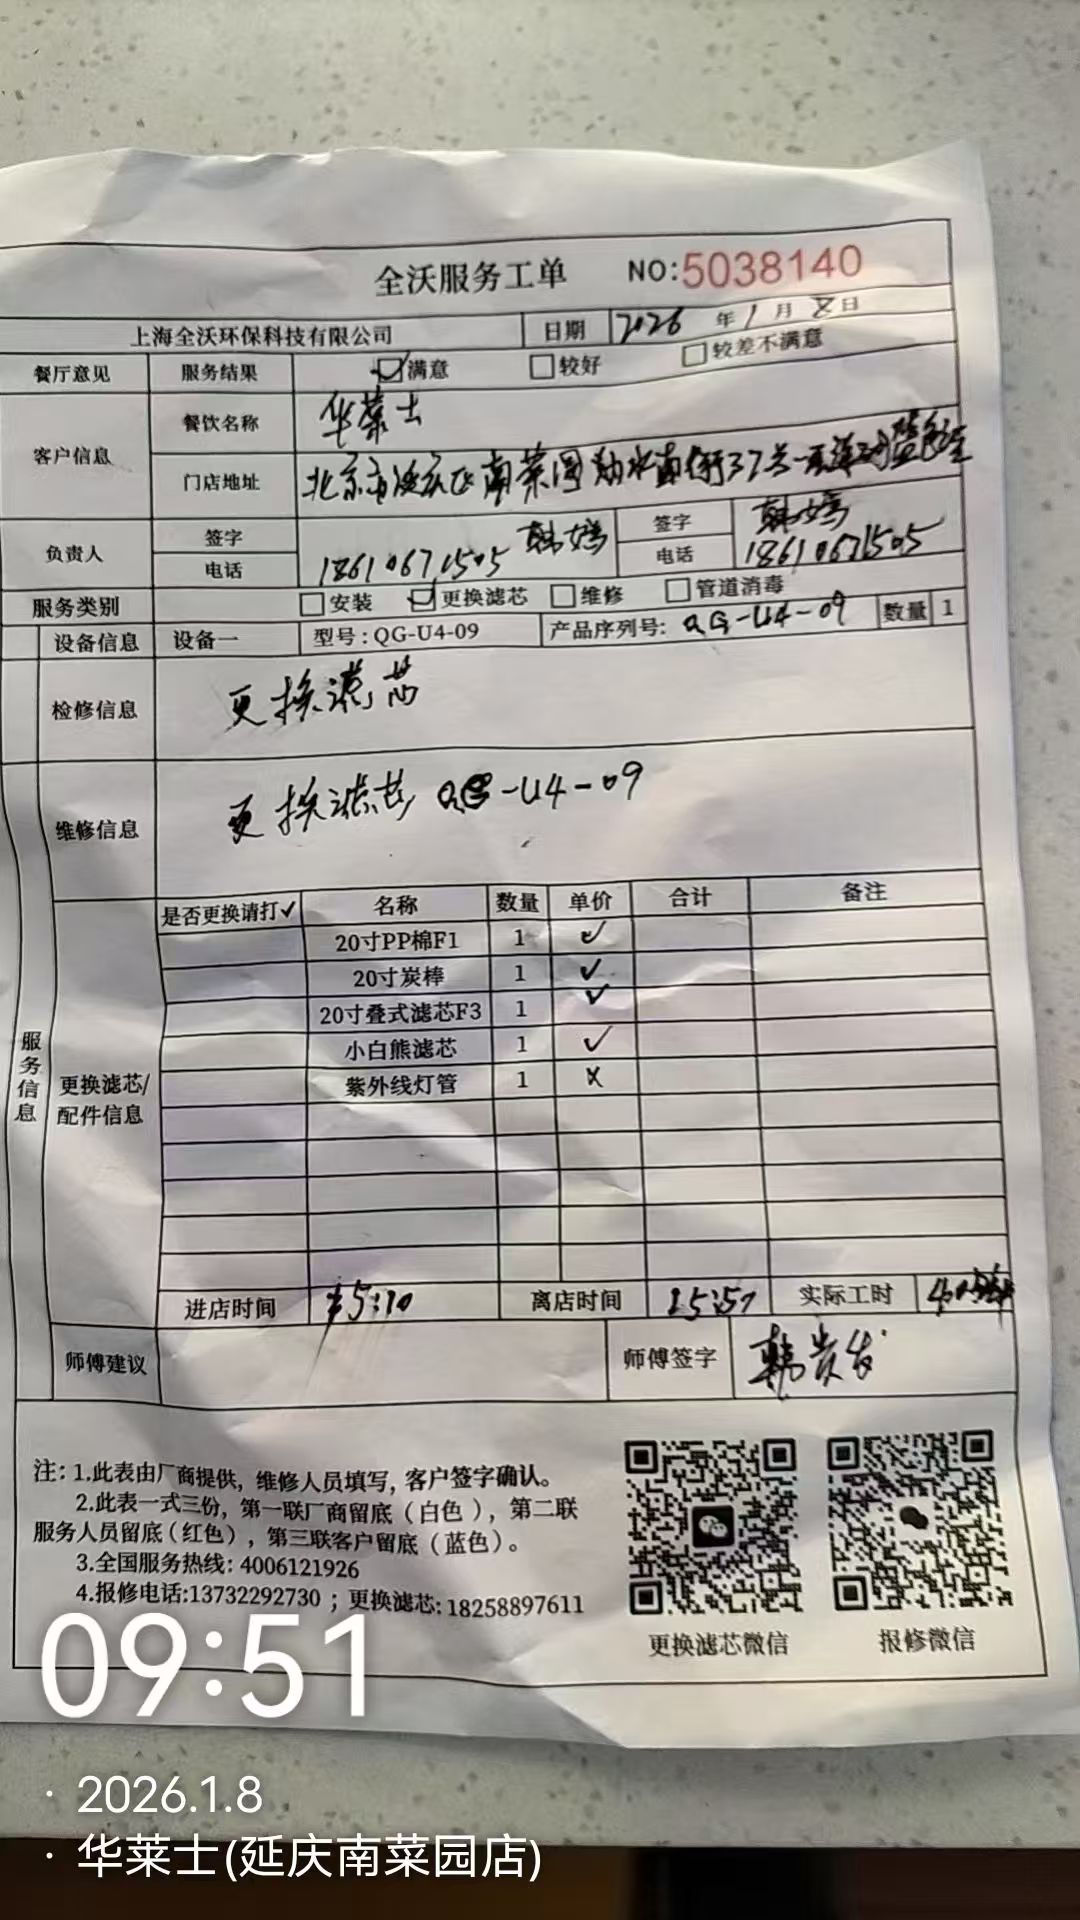 全沃服务工单 NO:5038140
上海全沃环保科技有限公司 日期 2026 年 1 月 8 日
餐厅意见 服务结果 满意 较好 较差不满意
客户信息 餐饮名称 华莱士
门店地址 北京市延庆区南菜园 南街37号
负责人 签字 韩嫣 签字 韩嫣
电话 18610671505 电话 18610671505
服务类别 安装 更换滤芯 维修 管道消毒
设备信息 设备一 型号:QG-U4-09 产品序列号: QG-U4-09 数量 1
检修信息 更换滤芯
维修信息 更换滤芯 QG-U4-09
服务信息
更换滤芯/配件信息
是否更换请打✓ 名称 数量 单价 合计 备注
20寸PP棉F1 1 ✓
20寸炭棒 1 ✓
20寸叠式滤芯F3 1 ✓
小白熊滤芯 1 ✓
紫外线灯管 1 X
进店时间 15:10 离店时间 15:57 实际工时
师傅建议 师傅签字 韩贵发
注: 1.此表由厂商提供, 维修人员填写, 客户签字确认。
2.此表一式三份, 第一联厂商留底 (白色), 第二联
服务人员留底(红色), 第三联客户留底 (蓝色)。
3.全国服务热线: 4006121926
4.报修电话:13732292730 ; 更换滤芯: 18258897611
更换滤芯微信 报修微信
09:51
· 2026.1.8
· 华莱士(延庆南菜园店)